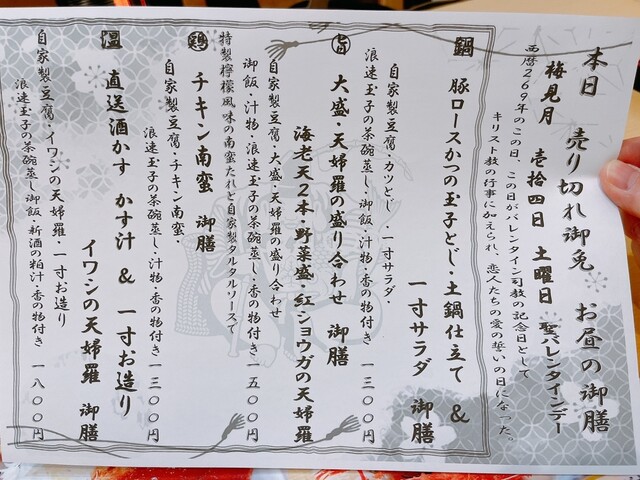 本日 売り切れ御免 お昼の御膳
梅見月 壱拾四日 土曜日 聖バレンタインデー
西暦269年のこの日、この日がバレンタイン司教の記念日として
キリスト教の行事に加えられ、恋人たちの愛の誓いの日になった。
鍋 豚ロースかつの玉子とじ・土鍋仕立て &
一寸サラダ 御膳
自家製豆腐・カツとじ・一寸サラダ・
浪速玉子の茶碗蒸し・御飯・汁物・香の物付き 一三〇〇円
旨 大盛・天婦羅の盛り合わせ 御膳
海老天2本・野菜盛・紅ショウガの天婦羅
自家製豆腐・大盛・天婦羅の盛り合わせ
御飯・汁物・浪速玉子の茶碗蒸し・香の物付き 一五〇〇円
特製檸檬風味の南蛮たれと自家製タルタルソースで
鶏 チキン南蛮 御膳
自家製豆腐・チキン南蛮・
浪速玉子の茶碗蒸し・汁物・香の物付き 一三〇〇円
温 直送酒かす かす汁 & 一寸お造り
イワシの天婦羅 御膳
自家製豆腐・イワシの天婦羅・一寸お造り
浪速玉子の茶碗蒸し・御飯・新酒の粕汁・香の物付き 一八〇〇円